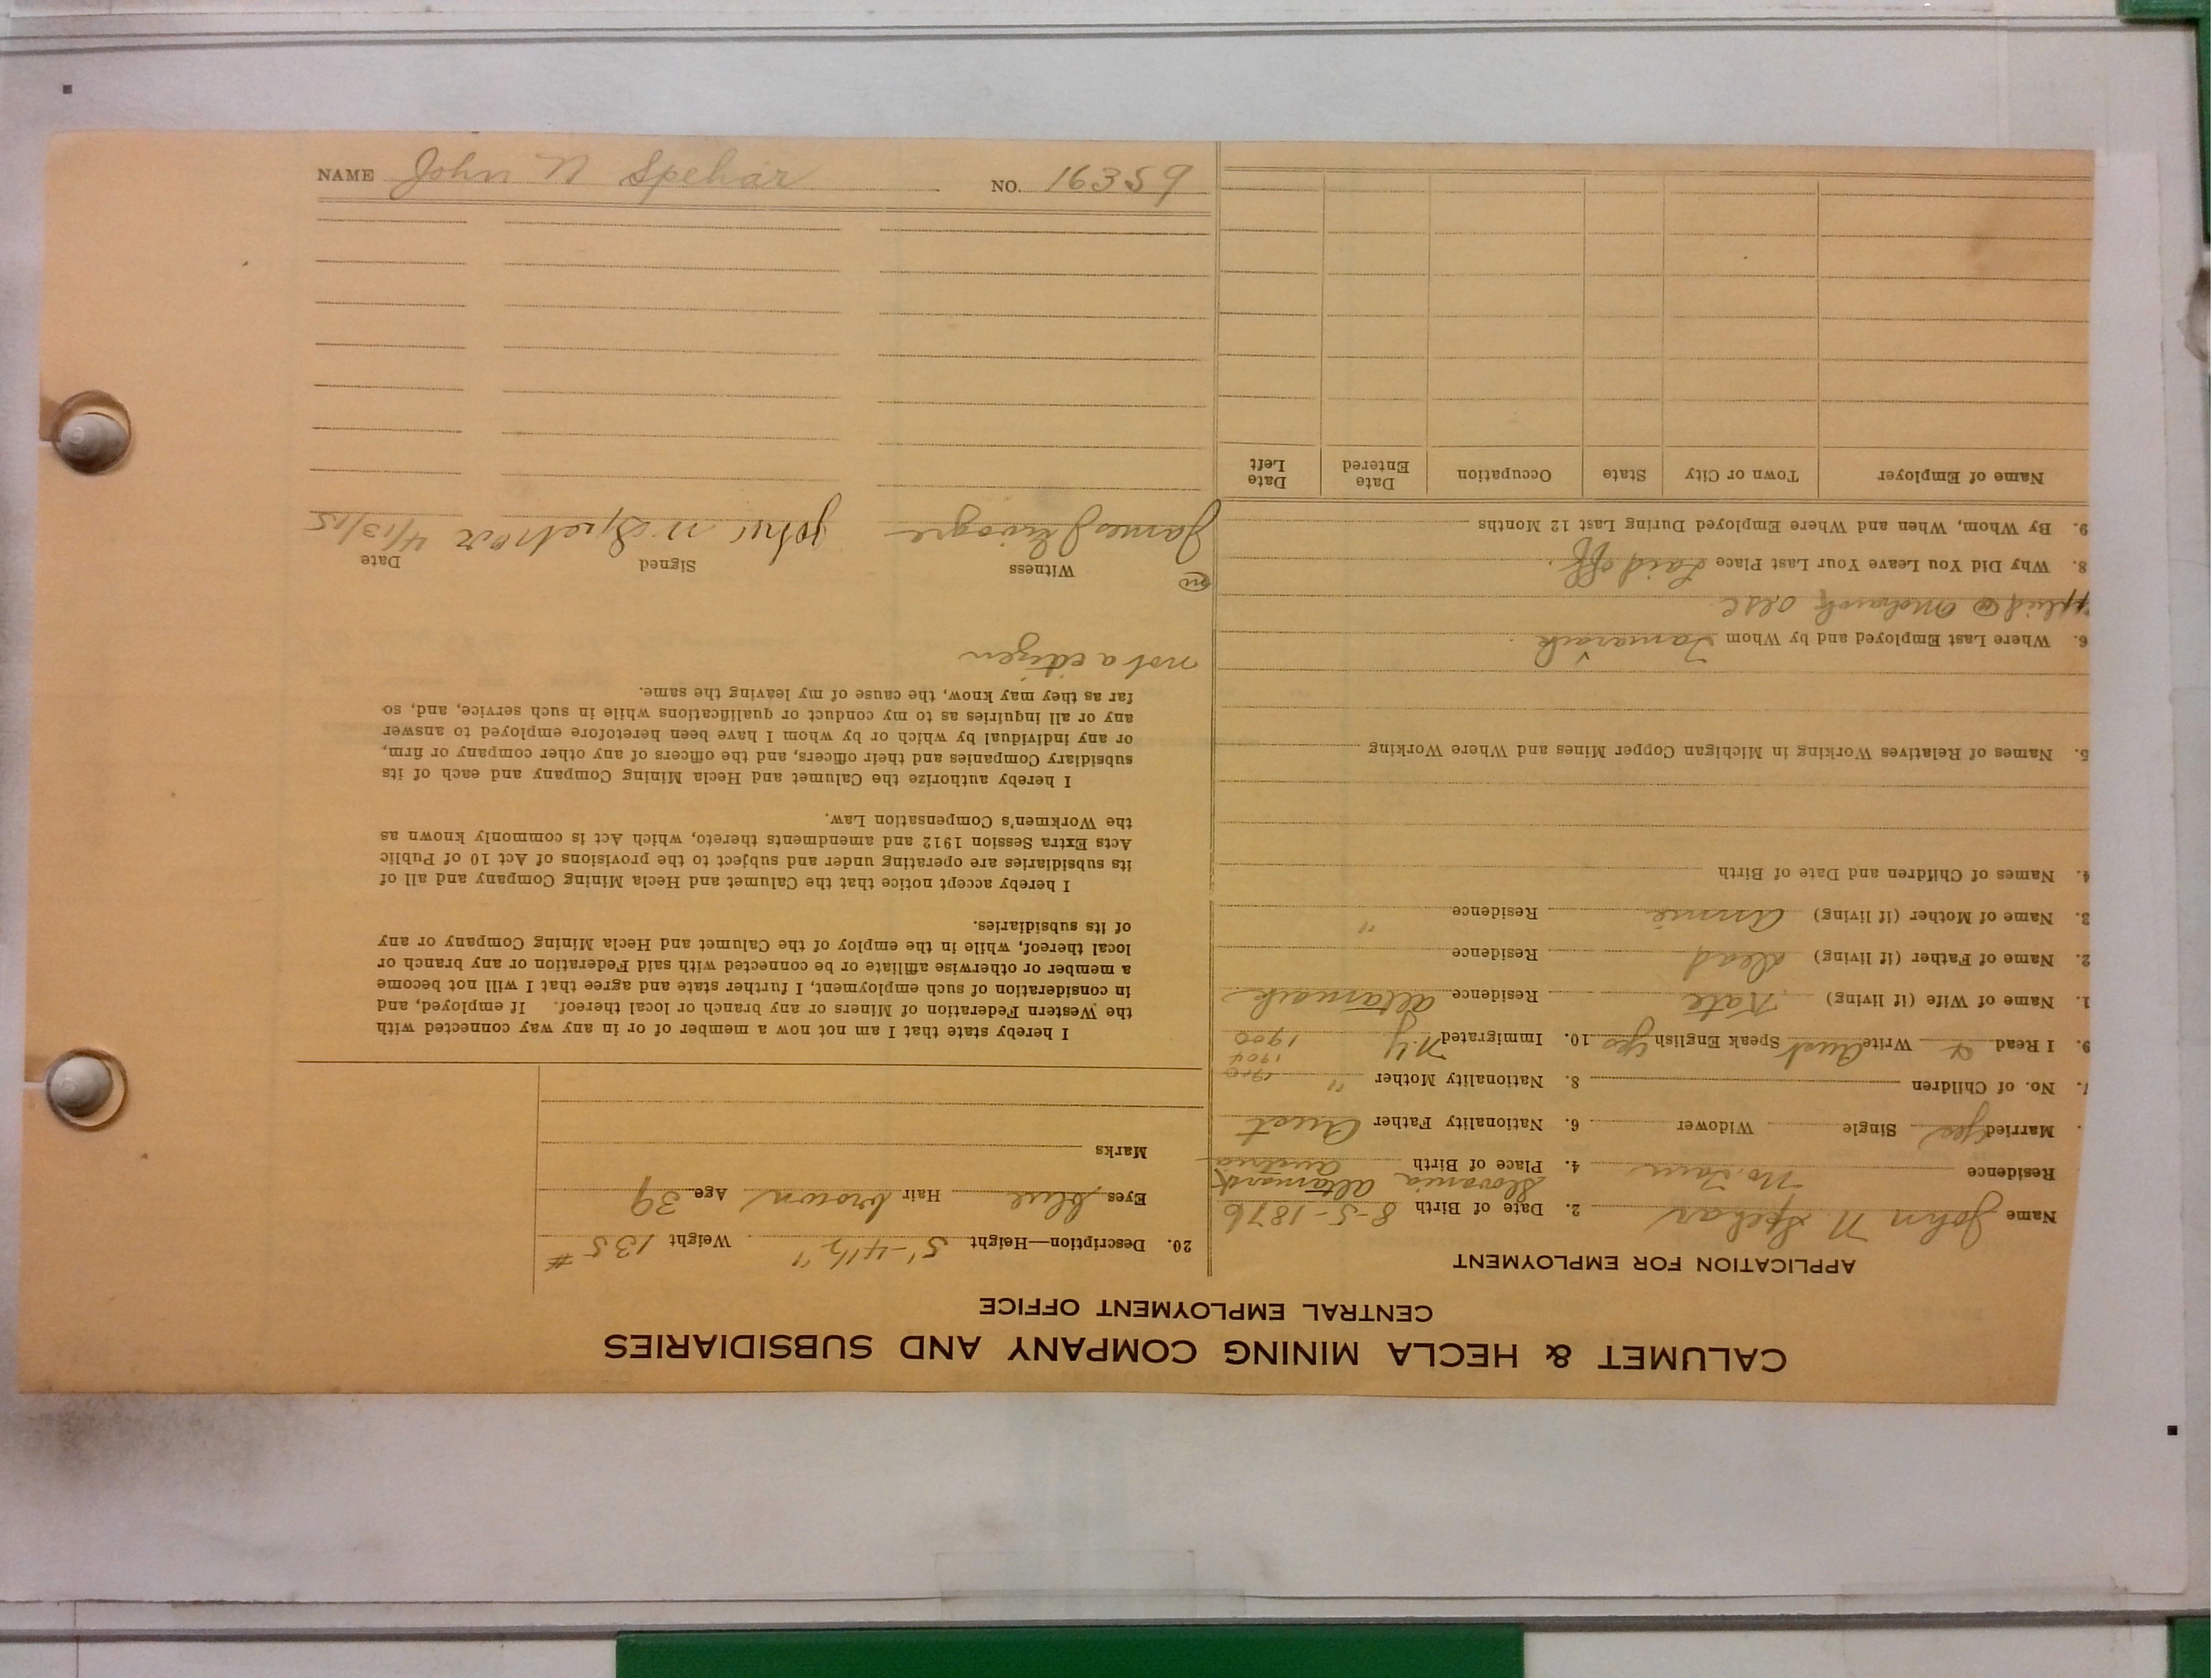 CALUMET & HECLA MINING COMPANY AND SUBSIDIARIES
CENTRAL EMPLOYMENT OFFICE
APPLICATION FOR EMPLOYMENT
Name John N Spehar 2. Date of Birth 8-5-1876
Slovania Altamarsk
Residence No. Tam 4. Place of Birth Austria
Married yes Single Widower 6. Nationality Father Aust
No. of Children 8. Nationality Mother "
1904
9. I Read & Write Aust Speak English yes 10. Immigrated N.Y. 1900
1. Name of Wife (if living) Kate Residence
2. Name of Father (if living) dead Residence
3. Name of Mother (if living) Annie Residence "
4. Names of Children and Date of Birth
5. Names of Relatives Working in Michigan Copper Mines and Where Working
6. Where Last Employed and by Whom Tamarack
8. Why Did You Leave Your Last Place Laid off.
9. By Whom, When and Where Employed During Last 12 Months
Name of Employer Town or City State Occupation Date Entered Date Left
20. Description—Height 5'-4½" Weight 135 #
Eyes blue Hair brown Age 39
Marks
I hereby state that I am not now a member of or in any way connected with
the Western Federation of Miners or any branch or local thereof. If employed, and
in consideration of such employment, I further state and agree that I will not become
a member or otherwise affiliate or be connected with said Federation or any branch or
local thereof, while in the employ of the Calumet and Hecla Mining Company or any
of its subsidiaries.
I hereby accept notice that the Calumet and Hecla Mining Company and all of
its subsidiaries are operating under and subject to the provisions of Act 10 of Public
Acts Extra Session 1912 and amendments thereto, which Act is commonly known as
the Workmen's Compensation Law.
I hereby authorize the Calumet and Hecla Mining Company and each of its
subsidiary Companies and their officers, and the officers of any other company or firm,
or any individual by which or by whom I have been heretofore employed to answer
any or all inquiries as to my conduct or qualifications while in such service, and, so
far as they may know, the cause of my leaving the same.
not a citizen
Witness Signed Date
James John N Spehar 4/13/15
NAME John N Spehar NO. 16359